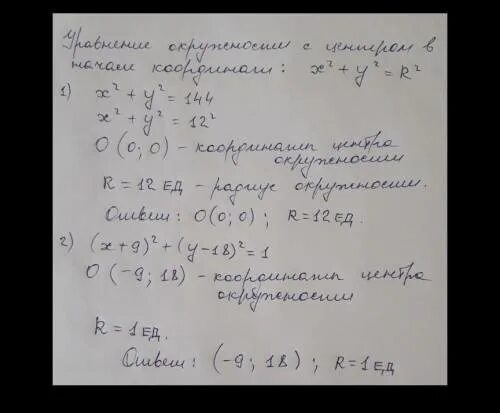 Уравнение окружности с центром в
начале координат: x² + y² = R²
1) x² + y² = 144
x² + y² = 12²
O (0; 0) - координаты центра
окружности
R = 12 ЕД - радиус окружности.
Ответ: O(0; 0) ; R = 12 ЕД.
2) (x+9)² + (y-18)² = 1
O (-9; 18) - координаты центра
окружности
R = 1 ЕД.
Ответ: (-9; 18) ; R = 1 ЕД